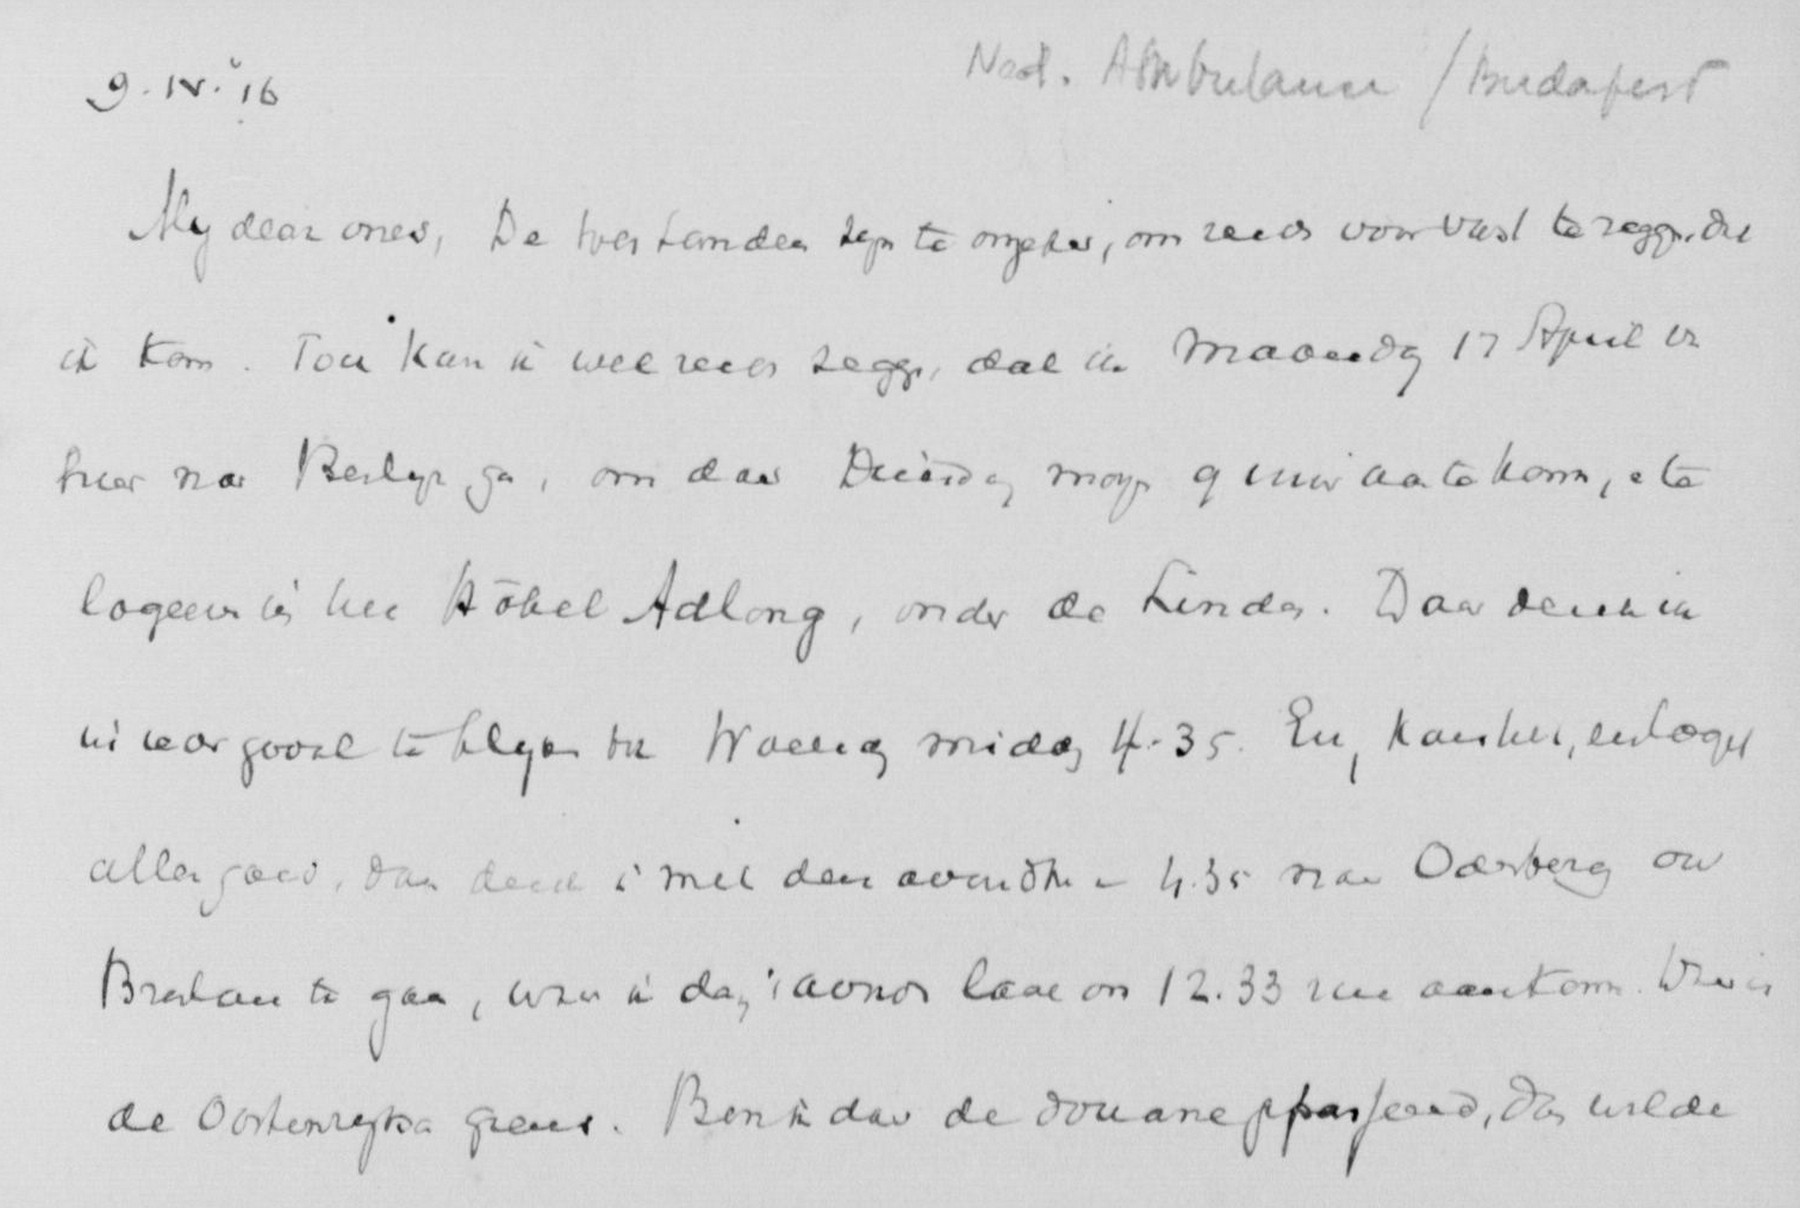 9.IV.'16
Ned. Ambulance / Budapest
My dear ones, De toestanden zyn te onzeker, om reeds voor vast te zeggen, dat
ik kom. Toch kan ik wel reeds zeggen, dat ik Maandag 17 April
hier naar Berlyn ga, om daar Dinsdag morgen 9 uur aan te komen, en te
logeeren in het Hôtel Adlong, onder de Linden. Daar denk ik
in ieder geval te blyven tot Woensdag middag 4.35. En,
allen goed, dan denk ik met den avondtrein 4.35 naar Oderberg over
Breslau te gaan, waar ik dan 's avonds laat om 12.33 zal aankomen.
de Oostenrykse grens. Ben ik daar de douane gepasseerd, dan wilde